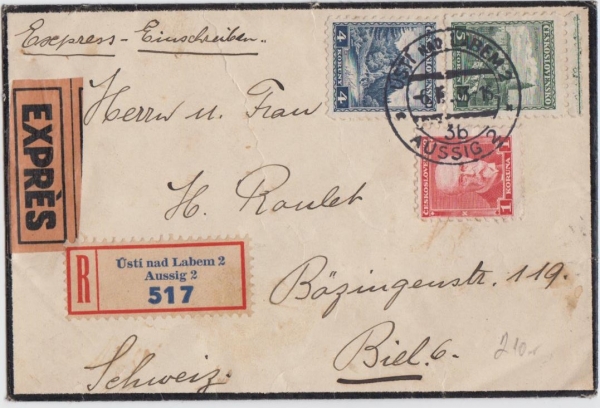 Express - Einschreiben
4 KORUN 4
ČESKOSLOVENSKO
5
ČESKOSLOVENSKO
ÚSTÍ NAD LABEM 2
3b
AUSSIG 2
EXPRÈS
Herrn u. Frau
1 KORUNA
ČESKOSLOVENSKO
H. Roulet
R
Ústí nad Labem 2
Aussig 2
517
Bözingenstr. 119.
Biel. 6.
Schweiz.
210.-